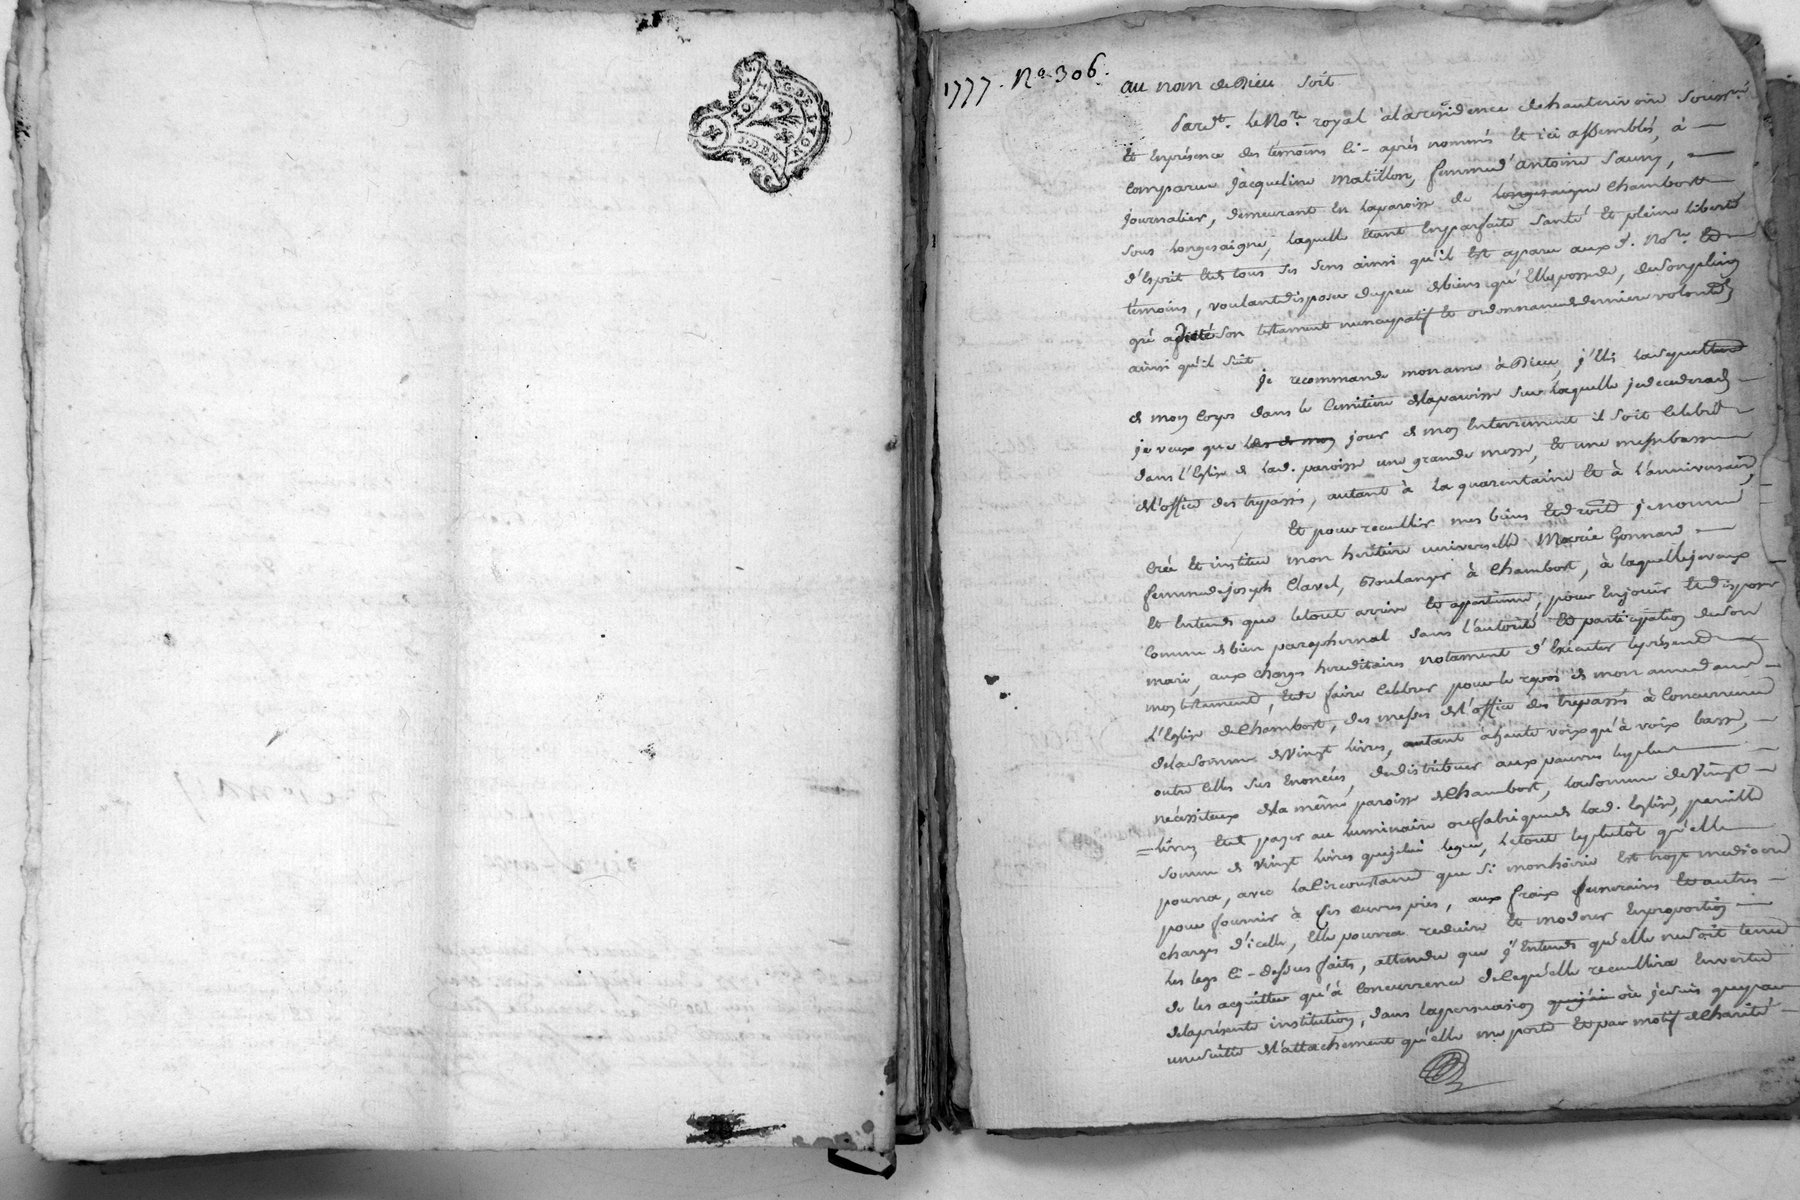 G. DE LYON
1777. No. 306.
au nom de Dieu soit
Pardt. le Nore. royal à la résidence de hauterivoire soussné
Et En présence des témoins Ci-après nommés Et ici assemblés, à
Comparue Jacqueline Matillon, femme d'antoine Sauny,
journalier, demeurant En la paroisse de Longesaigne Chambost
sous Longesaigne, laquelle étant En parfaite santé Et pleine liberté
d'Esprit Et de tous ses sens ainsi qu'il Est aparu aux d. Nore. Et
témoins, voulant disposer du peu de biens qu'Elle possede, de son plein
gré a dicté son testament nuncupatif Et ordonnance de derniere volonté
ainsi qu'il suit
je recommande mon ame à Dieu, j'Elis la sepulture
de mon Corps dans le Cimitiere de la paroisse sur laquelle je decederai
je veux que jour de mon Enterrement il soit Celebré
dans l'Eglise de lad. paroisse une grande messe, Et une messe basse
de l'office des trepassés, autant à la quarentaine Et à l'anniversaire,
Et pour recuillir mes biens Et droits je nomme
Crée Et institue mon heritiere universelle Marie Gonnard
femme de joseph Clavel, Boulanger à Chambost, à laquelle je veux
Et Entends que le tout arrive Et apartienne, pour En jouir Et disposer
Comme de bien paraphernal sans l'autorité Et participation de son
mari, aux charges hereditaires notament d'Executer le présent
mon testament, Et de faire Celebrer pour le repos de mon ame dans
l'Eglise de Chambost, des messes de l'office des trepassés à Concurrence
de la somme de Vingt livres, autant à haute voix qu'à voix basse,
outre Celles sus Enoncées, de distribuer aux pauvres les plus
nécéssiteux de la même paroisse de Chambost, la somme de Vingt
livres, Et de payer au luminaire ou fabrique de lad. Eglise, pareille
somme de Vingt livres que je lui legue, le tout le plutôt qu'elle
pourra, avec la Circonstance que si mon hoirie Est trop mediocre
pour fournir à Ces œuvres pies, aux fraix funeraires Et autres
charges d'icelle, Elle pourra reduire Et moderer En proportion
les legs Ci-dessus faits, attendu que j'Entends qu'elle ne soit tenue
de les acquitter qu'à Concurrence de ce qu'elle recuillira En vertu
de la présente institution, dans la persuasion où je suis que par
une suite de l'attachement qu'elle me porte Et par motif de Charité